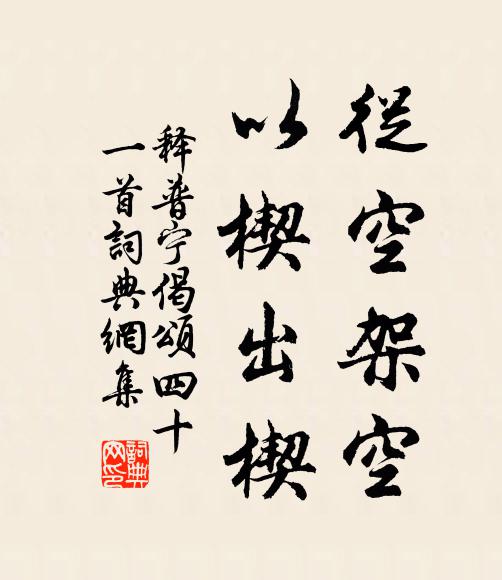 從空架空
以楔出楔
释普宁偈頌四十
一首詞典網集
詞典
网印